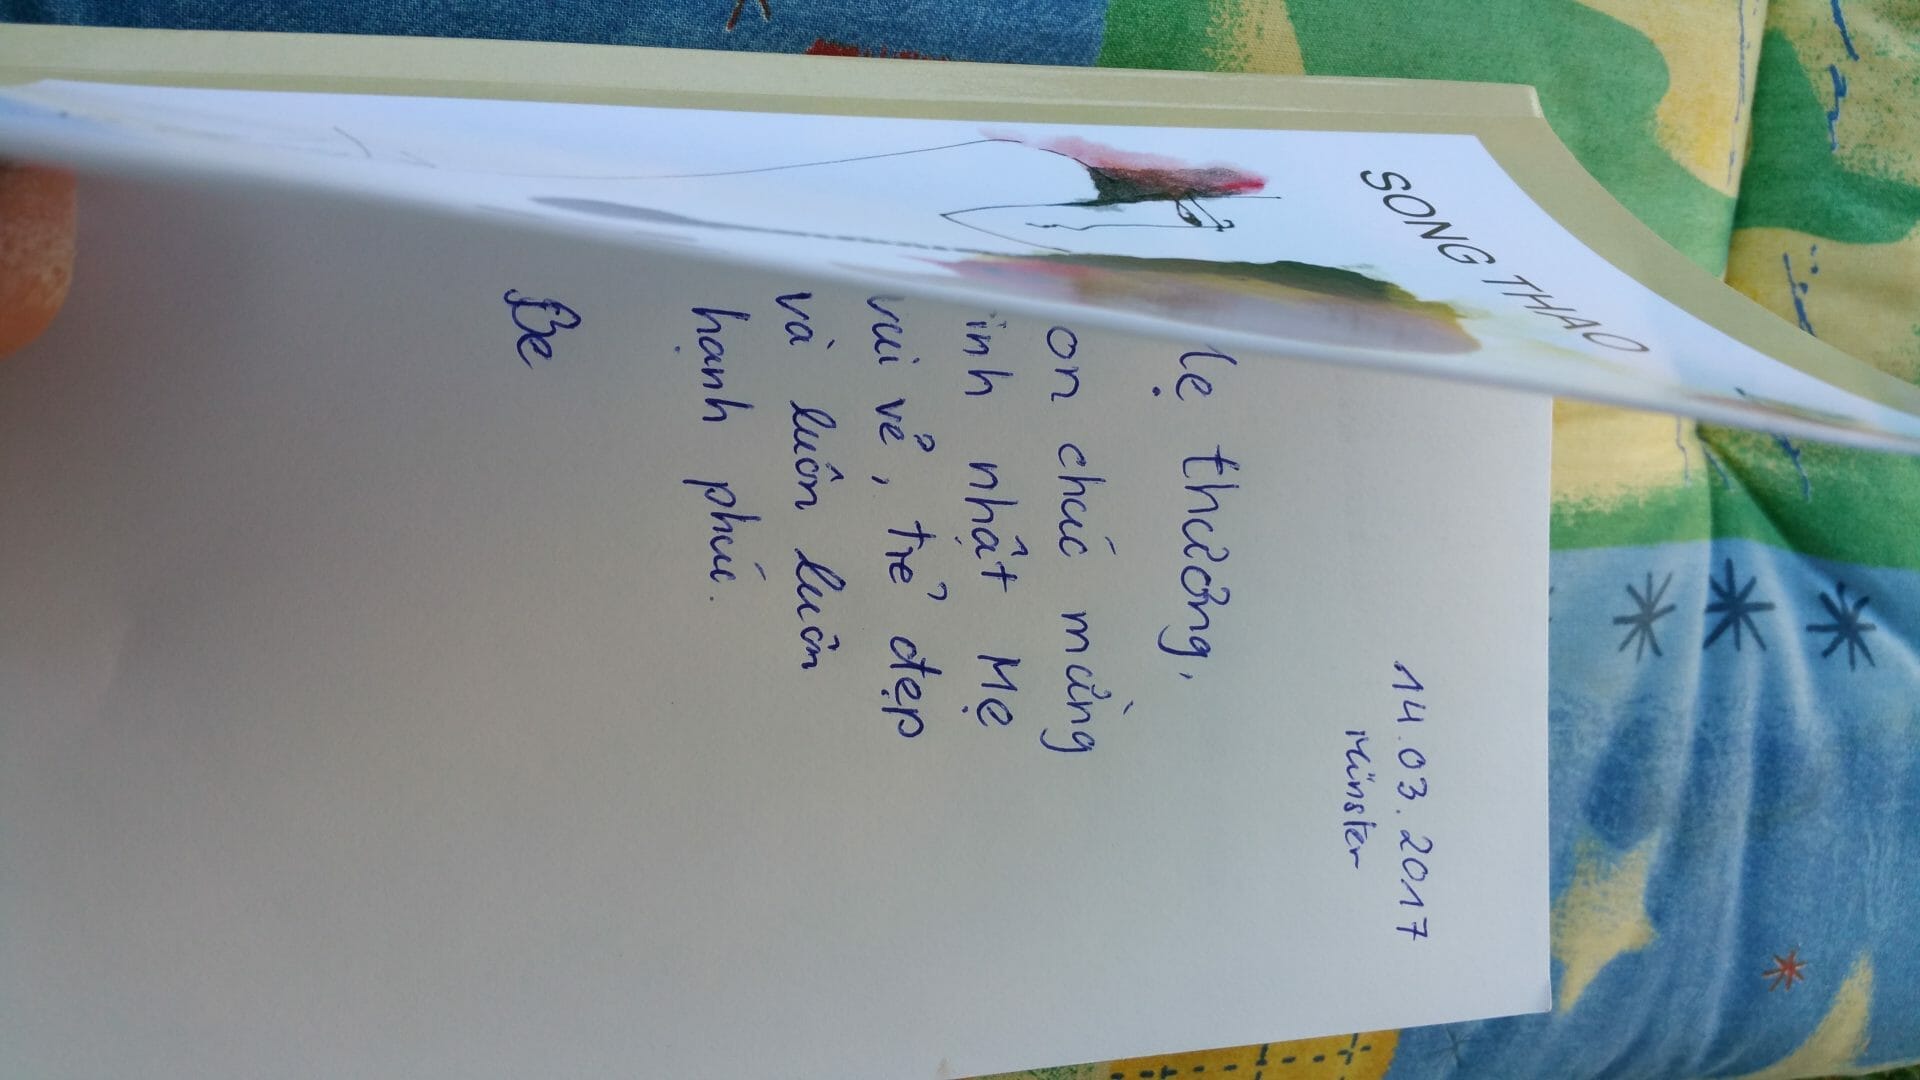 SONG THAO
14.03.2017
Münster
lẹ thương,
on chúc mừng
inh nhật Mẹ
vui vẻ, trẻ đẹp
và luôn luôn
hạnh phúc.
Be